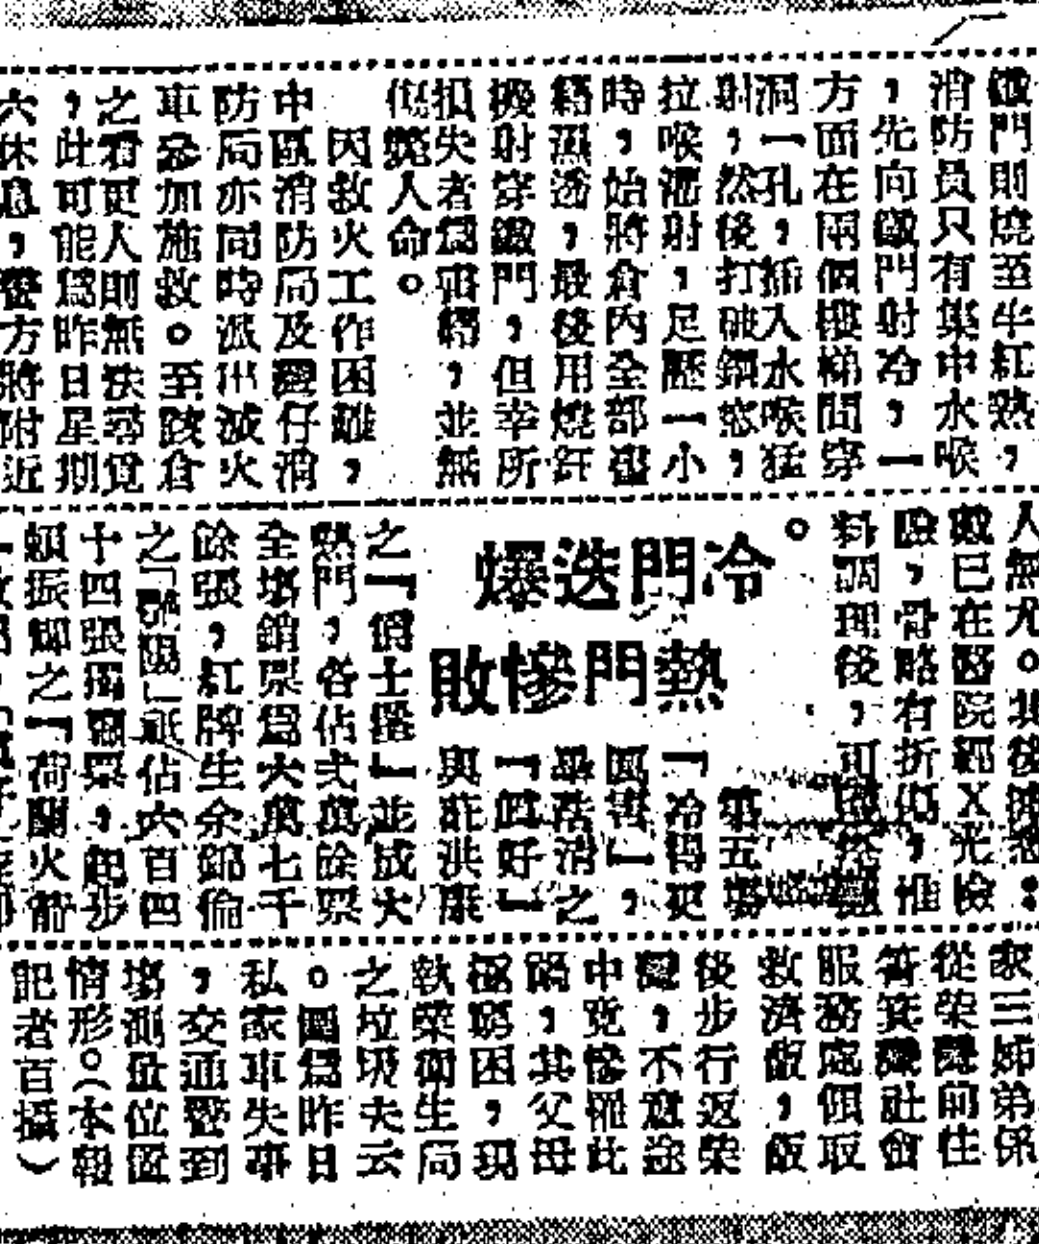 鐵門則燒至半紅熱，
消防員只有集中水喉
，先向鐵門射冷，一
方面在兩個樓梯間穿
洞一孔，插入水喉猛
射，然後打破鋼窓，
拉喉灌射，足歷一小
時，始將倉內全部書
籍濕透，最後用燒釬
機射穿鐵門，但幸所
損失者爲書籍，並無
傷斃人命。
因救火工作困難，
中區消防局及灣仔消
防局亦同時派出滅火
車參加施救。至該倉
之看更人則無法尋覓
，此可能爲昨日星期
六休息，警方將附近
人無尤。其後
已在醫院經X光檢
驗，骨略有折傷，惟
料調理後，可
。
冷門迭爆
熱門慘敗
第五塲
「冷得更
厲害」，
畢浩淸之
「眞好」
與許洪康
之「爵士堡」並成大
熱門，各佔弍萬餘票
全塲銷票爲六萬七千
餘張，紅牌生余錦倫
之「艷陽」祇佔六百四
十四張獨贏票，起步
頼振卿之「荷蘭火箭
家三姊弟係
從柴灣前往
筲箕灣社會
服務處領取
救濟飯，飯
後步行返柴
灣，不意途
中竟慘罹此
禍，其父母
極窮困，現
執業衛生局
之垃圾夫云
。圖爲昨日
私家車失事
，交通警到
塲測量位置
情形。（本報
記者百攝）